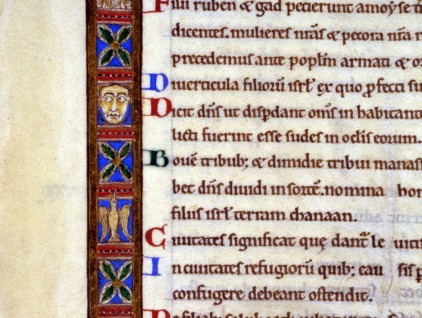 Filii ruben & gad petierunt amoyse t
dicentes. mulieres nr̄as & pecora nr̄a r
precedemus ante pop̄lm armati & o
Diuerticula filiorū isrl̄ ex quo p̄fecti su
Dicit dn̄s ut disp̄dant om̄s in habitant
licti fuerint esse sudes in oc̄lis eorum.
Noue tribub; & dimidie tribui manas
bet dn̄s diuidi in sorte. nomina hom
filiis isrl̄ terram chanaan.
Ciuitates significat quę dant̄ le uitis
In ciuitates refugiorū quib; cau sis p
confugere debeant ostendit.